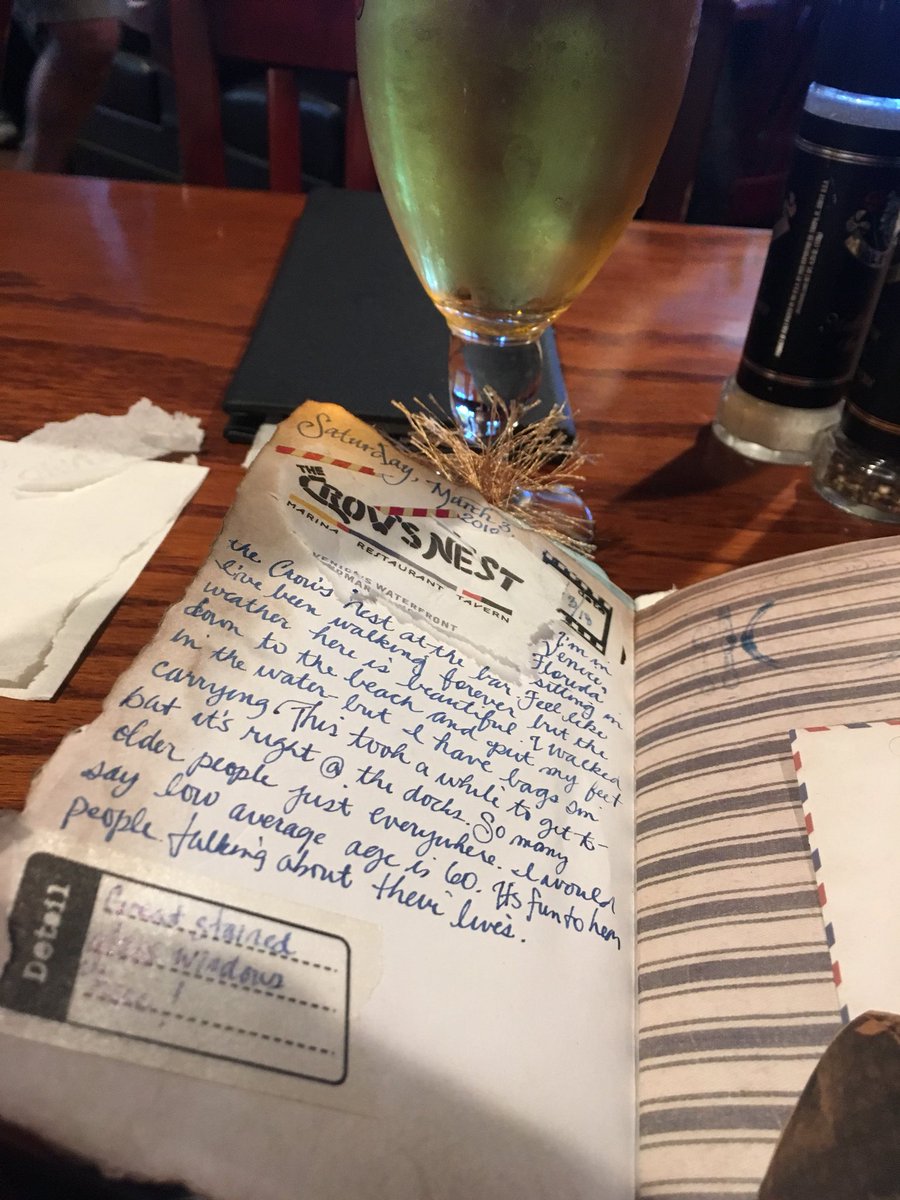 Saturday, March 3,
2018
THE
CROW'S NEST
MARINA RESTAURANT TAVERN
VENICE'S WATERFRONT
I'm in
Venice,
Florida
sitting in
the Crow's Nest at the bar. Feel like
I've been walking forever but the
weather here is beautiful. I walked
down to the beach and put my feet
in the water - but I have bags I'm
carrying. This took a while to get to -
but it's right @ the docks. So many
older people just everywhere. I would
say low average age is 60. It's fun to hear
people talking about their lives.
Detail
Great stained
glass windows
here!